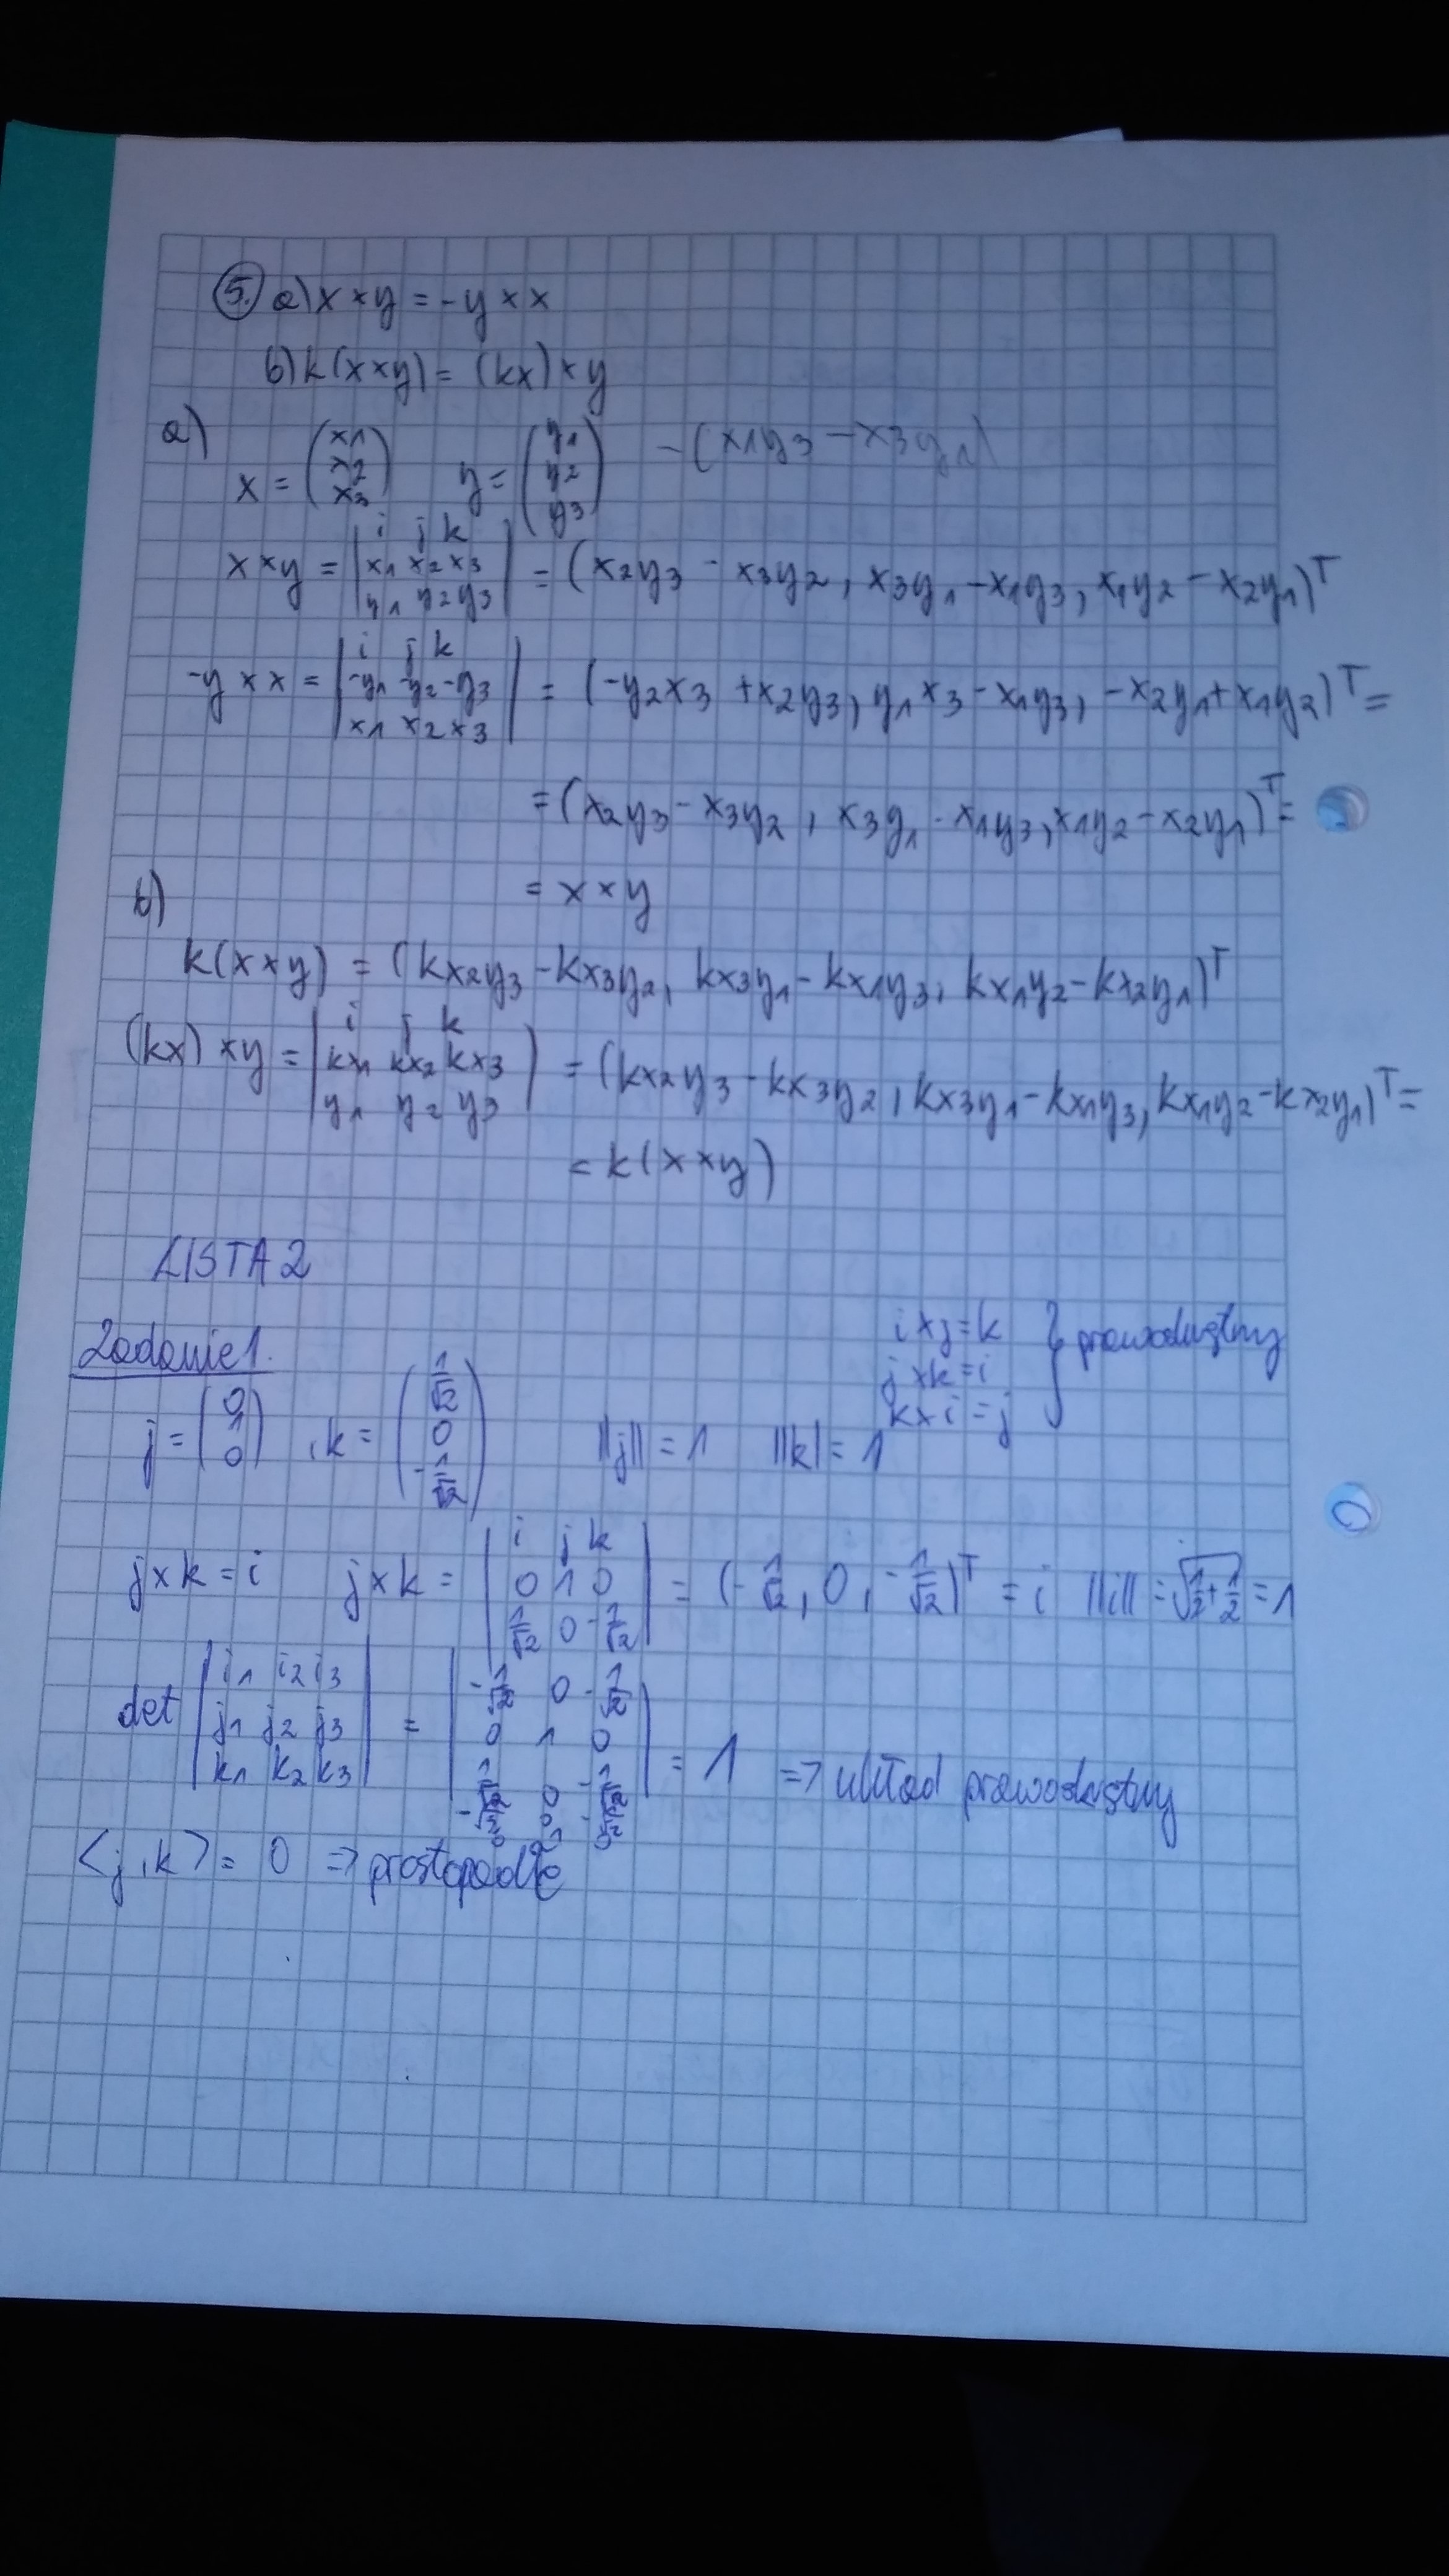 5. a) x × y = -y × x
b) k(x×y) = (kx) × y
a)
x = (x1 x2 x3) y = (y1 y2 y3) -(x1y3 - x3y1)
x × y = |i j k x1 x2 x3 y1 y2 y3| = (x2y3 - x3y2, x3y1 - x1y3, x1y2 - x2y1)^T
-y × x = |i j k -y1 -y2 -y3 x1 x2 x3| = (-y2x3 + x2y3, y1x3 - x1y3, -x2y1 + x1y2)^T =
= (x2y3 - x3y2, x3y1 - x1y3, x1y2 - x2y1)^T =
= x × y
b)
k(x×y) = (kx2y3 - kx3y2, kx3y1 - kx1y3, kx1y2 - kx2y1)^T
(kx) × y = |i j k kx1 kx2 kx3 y1 y2 y3| = (kx2y3 - kx3y2, kx3y1 - kx1y3, kx1y2 - kx2y1)^T =
= k(x×y)
LISTA 2
Zadanie 1.
i×j=k
j×k=i
k×i=j } prawoskrętny
j = (0 1 0), k = (1/√2 0 -1/√2) ||j|| = 1 ||k|| = 1
j×k = i j×k = |i j k 0 1 0 1/√2 0 -1/√2| = (-1/√2, 0, -1/√2)^T = i ||i|| = √(1/2+1/2) = 1
det |i1 i2 i3 j1 j2 j3 k1 k2 k3| = |-1/√2 0 -1/√2 0 1 0 1/√2 0 -1/√2| = 1 => układ prawoskrętny
<j,k> = 0 => prostopadłe